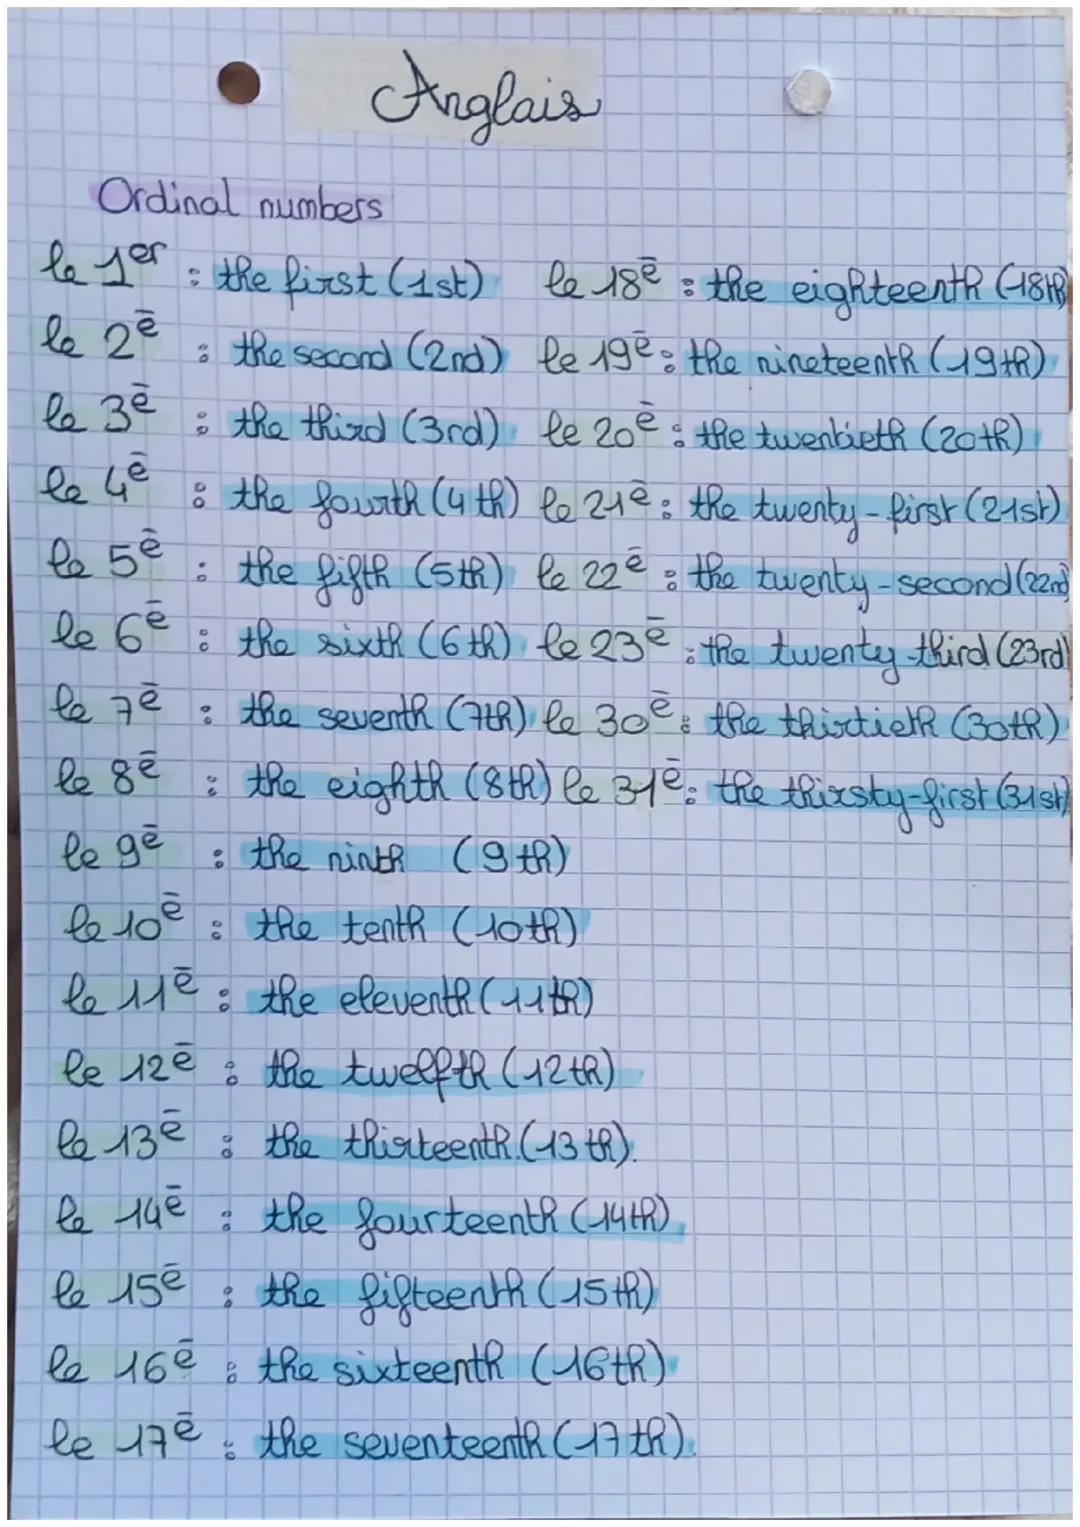 Anglais
Ordinal numbers
le 1er : the first (1st)
le 2ē : the second (2nd)
le 3ē : the third (3rd)
le 4ē : the fourth (4th)
le 5ē : the fifth (5th)
le 6ē : the sixth (6th)
le 7ē : the seventh (7th)
le 8ē : the eighth (8th)
le 9ē : the ninth (9th)
le 10ē : the tenth (10th)
le 11ē : the eleventh (11th)
le 12ē : the twelfth (12th)
le 13ē : the thirteenth (13th).
le 14ē : the fourteenth (14th)
le 15ē : the fifteenth (15th)
le 16ē : the sixteenth (16th)
le 17ē : the seventeenth (17th).
le 18ē : the eighteenth (18th)
le 19ē : the nineteenth (19th)
le 20ē : the twentieth (20th)
le 21ē : the twenty-first (21st)
le 22ē : the twenty-second (22nd)
le 23ē : the twenty-third (23rd)
le 30ē : the thirtieth (30th)
le 31ē : the thirsty-first (31st)